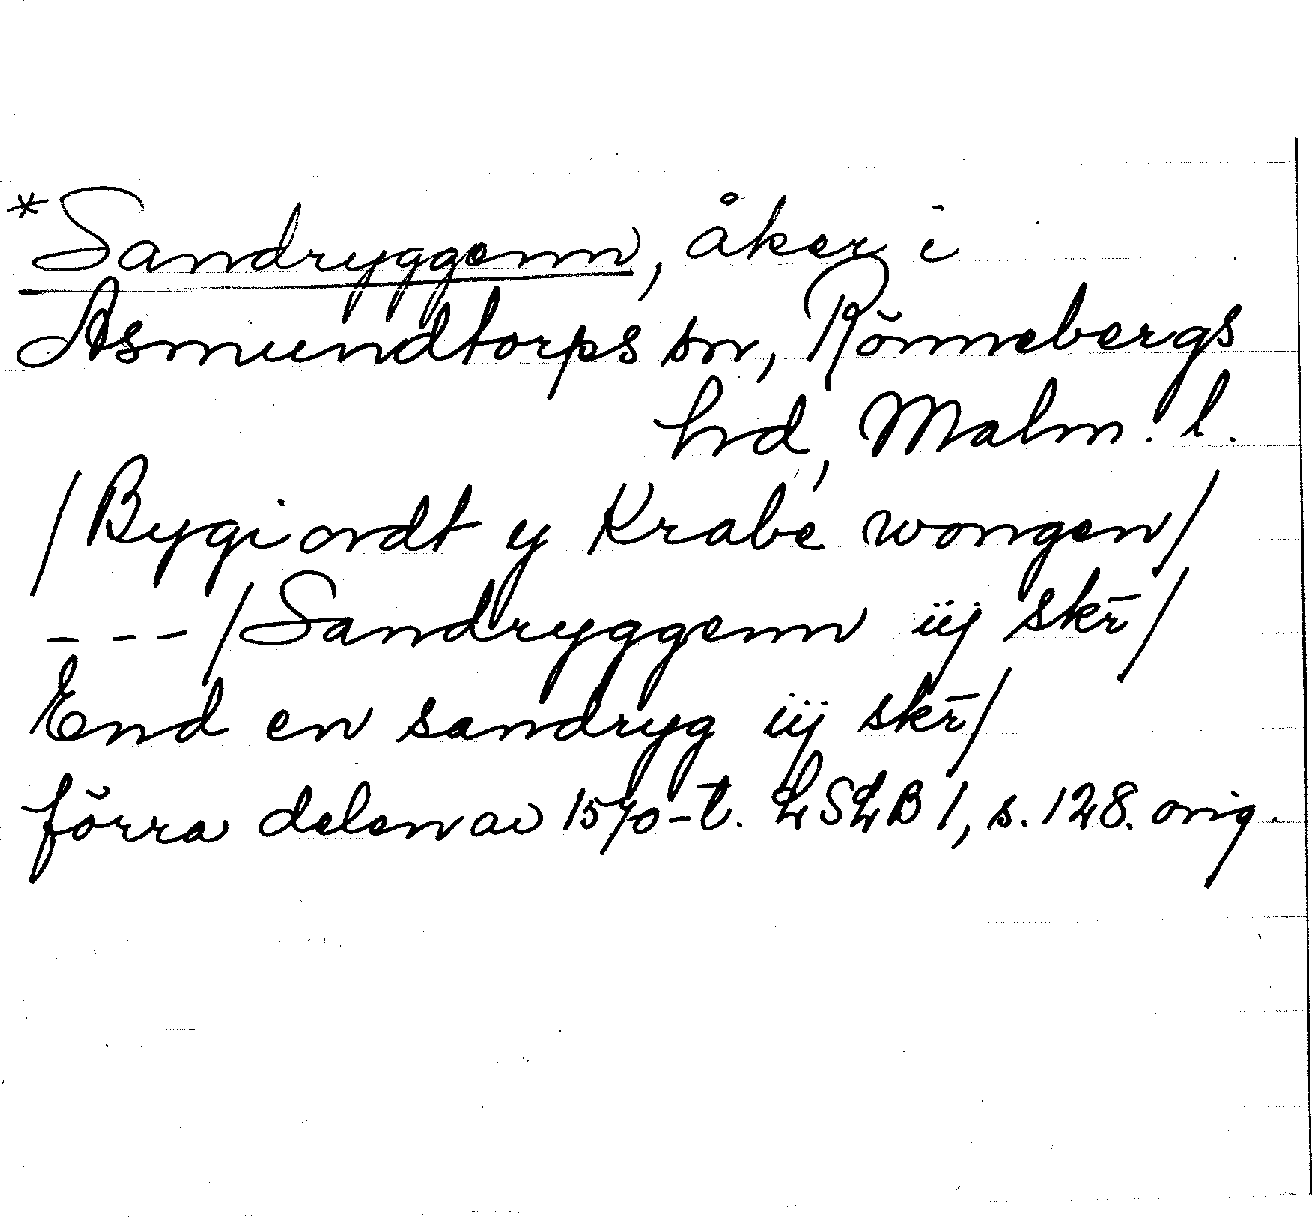 *Sandryggenn, åker i
Asmundtorps sn, Rönnebergs
hd, Malm. l.
/Bygi ordt y Krabe wongen/
---/Sandryggenn iij skr̄/
End en sandryg iij skr̄/
förra delen av 1570-t. LSLB 1, s. 128. orig.